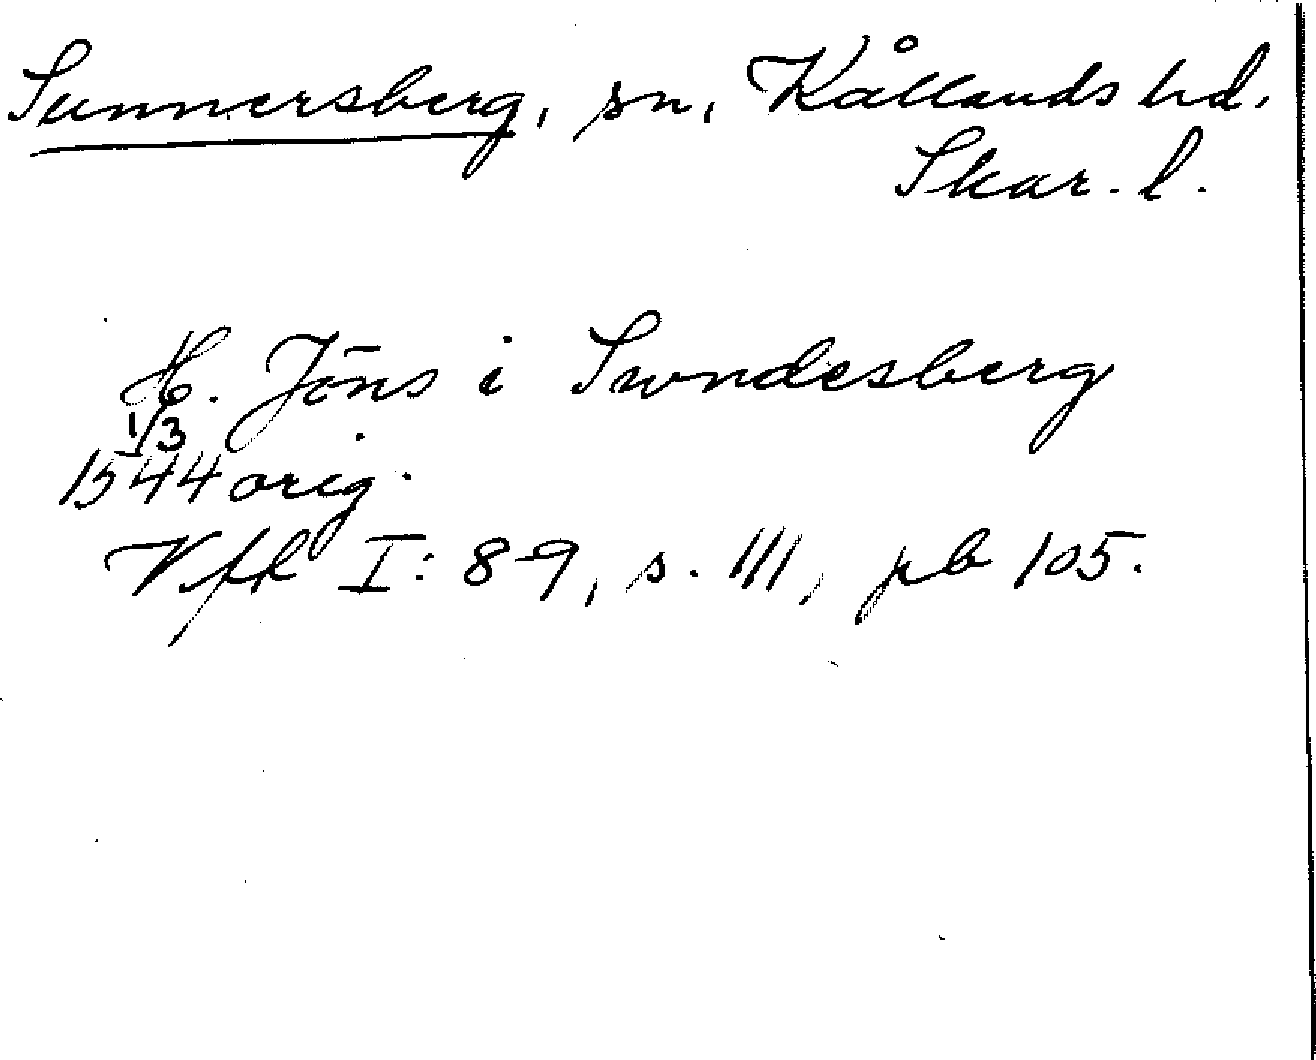 Sunnersberg, sn, Kållands hd.
Skar. l.
H. Jöns i Swndesberg
1/3
1544 orig.
Vfk I: 8-9, s. 111, pb 105.